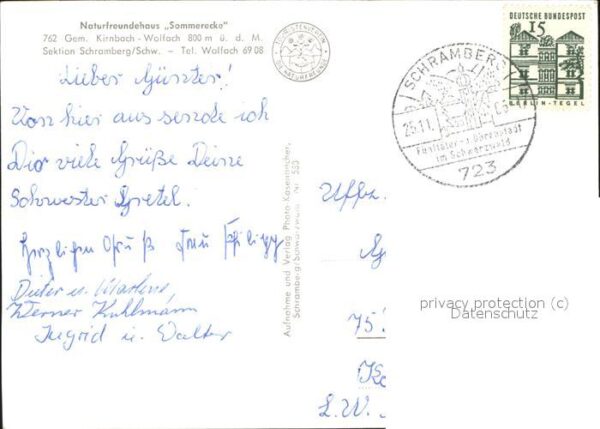 Naturfreundehaus „Sommerecke"
762 Gem. Kirnbach-Wolfach 800 m ü. d. M.
Sektion Schramberg/Schw. – Tel. Wolfach 69 08
Lieber Günter!
Von hier aus sende ich
Dir viele Grüße Deine
Schwester Gretel.
Herzlichen Gruß
Dieter u.
Werner Kuhlmann
Ingrid u. Walter
Aufnahme und Verlag Photo-Kasenbacher,
Schramberg/Schwarzwald Nr. 583
DIE NATURFREUNDE
DEUTSCHE BUNDESPOST
15
BERLIN-TEGEL
SCHRAMBERG
25.11.
im Schwarzwald
723
Uffz.
75
L.W.
privacy protection (c)
Datenschutz